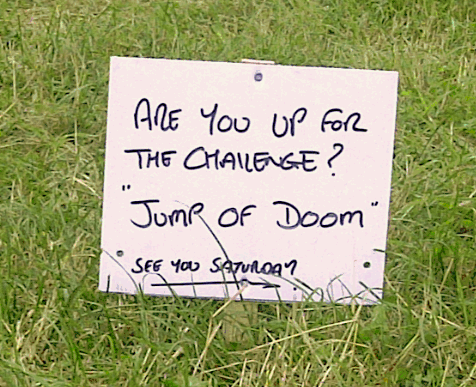 ARE YOU UP FOR
THE CHALLENGE?
"JUMP OF DOOM"
SEE YOU SATURDAY